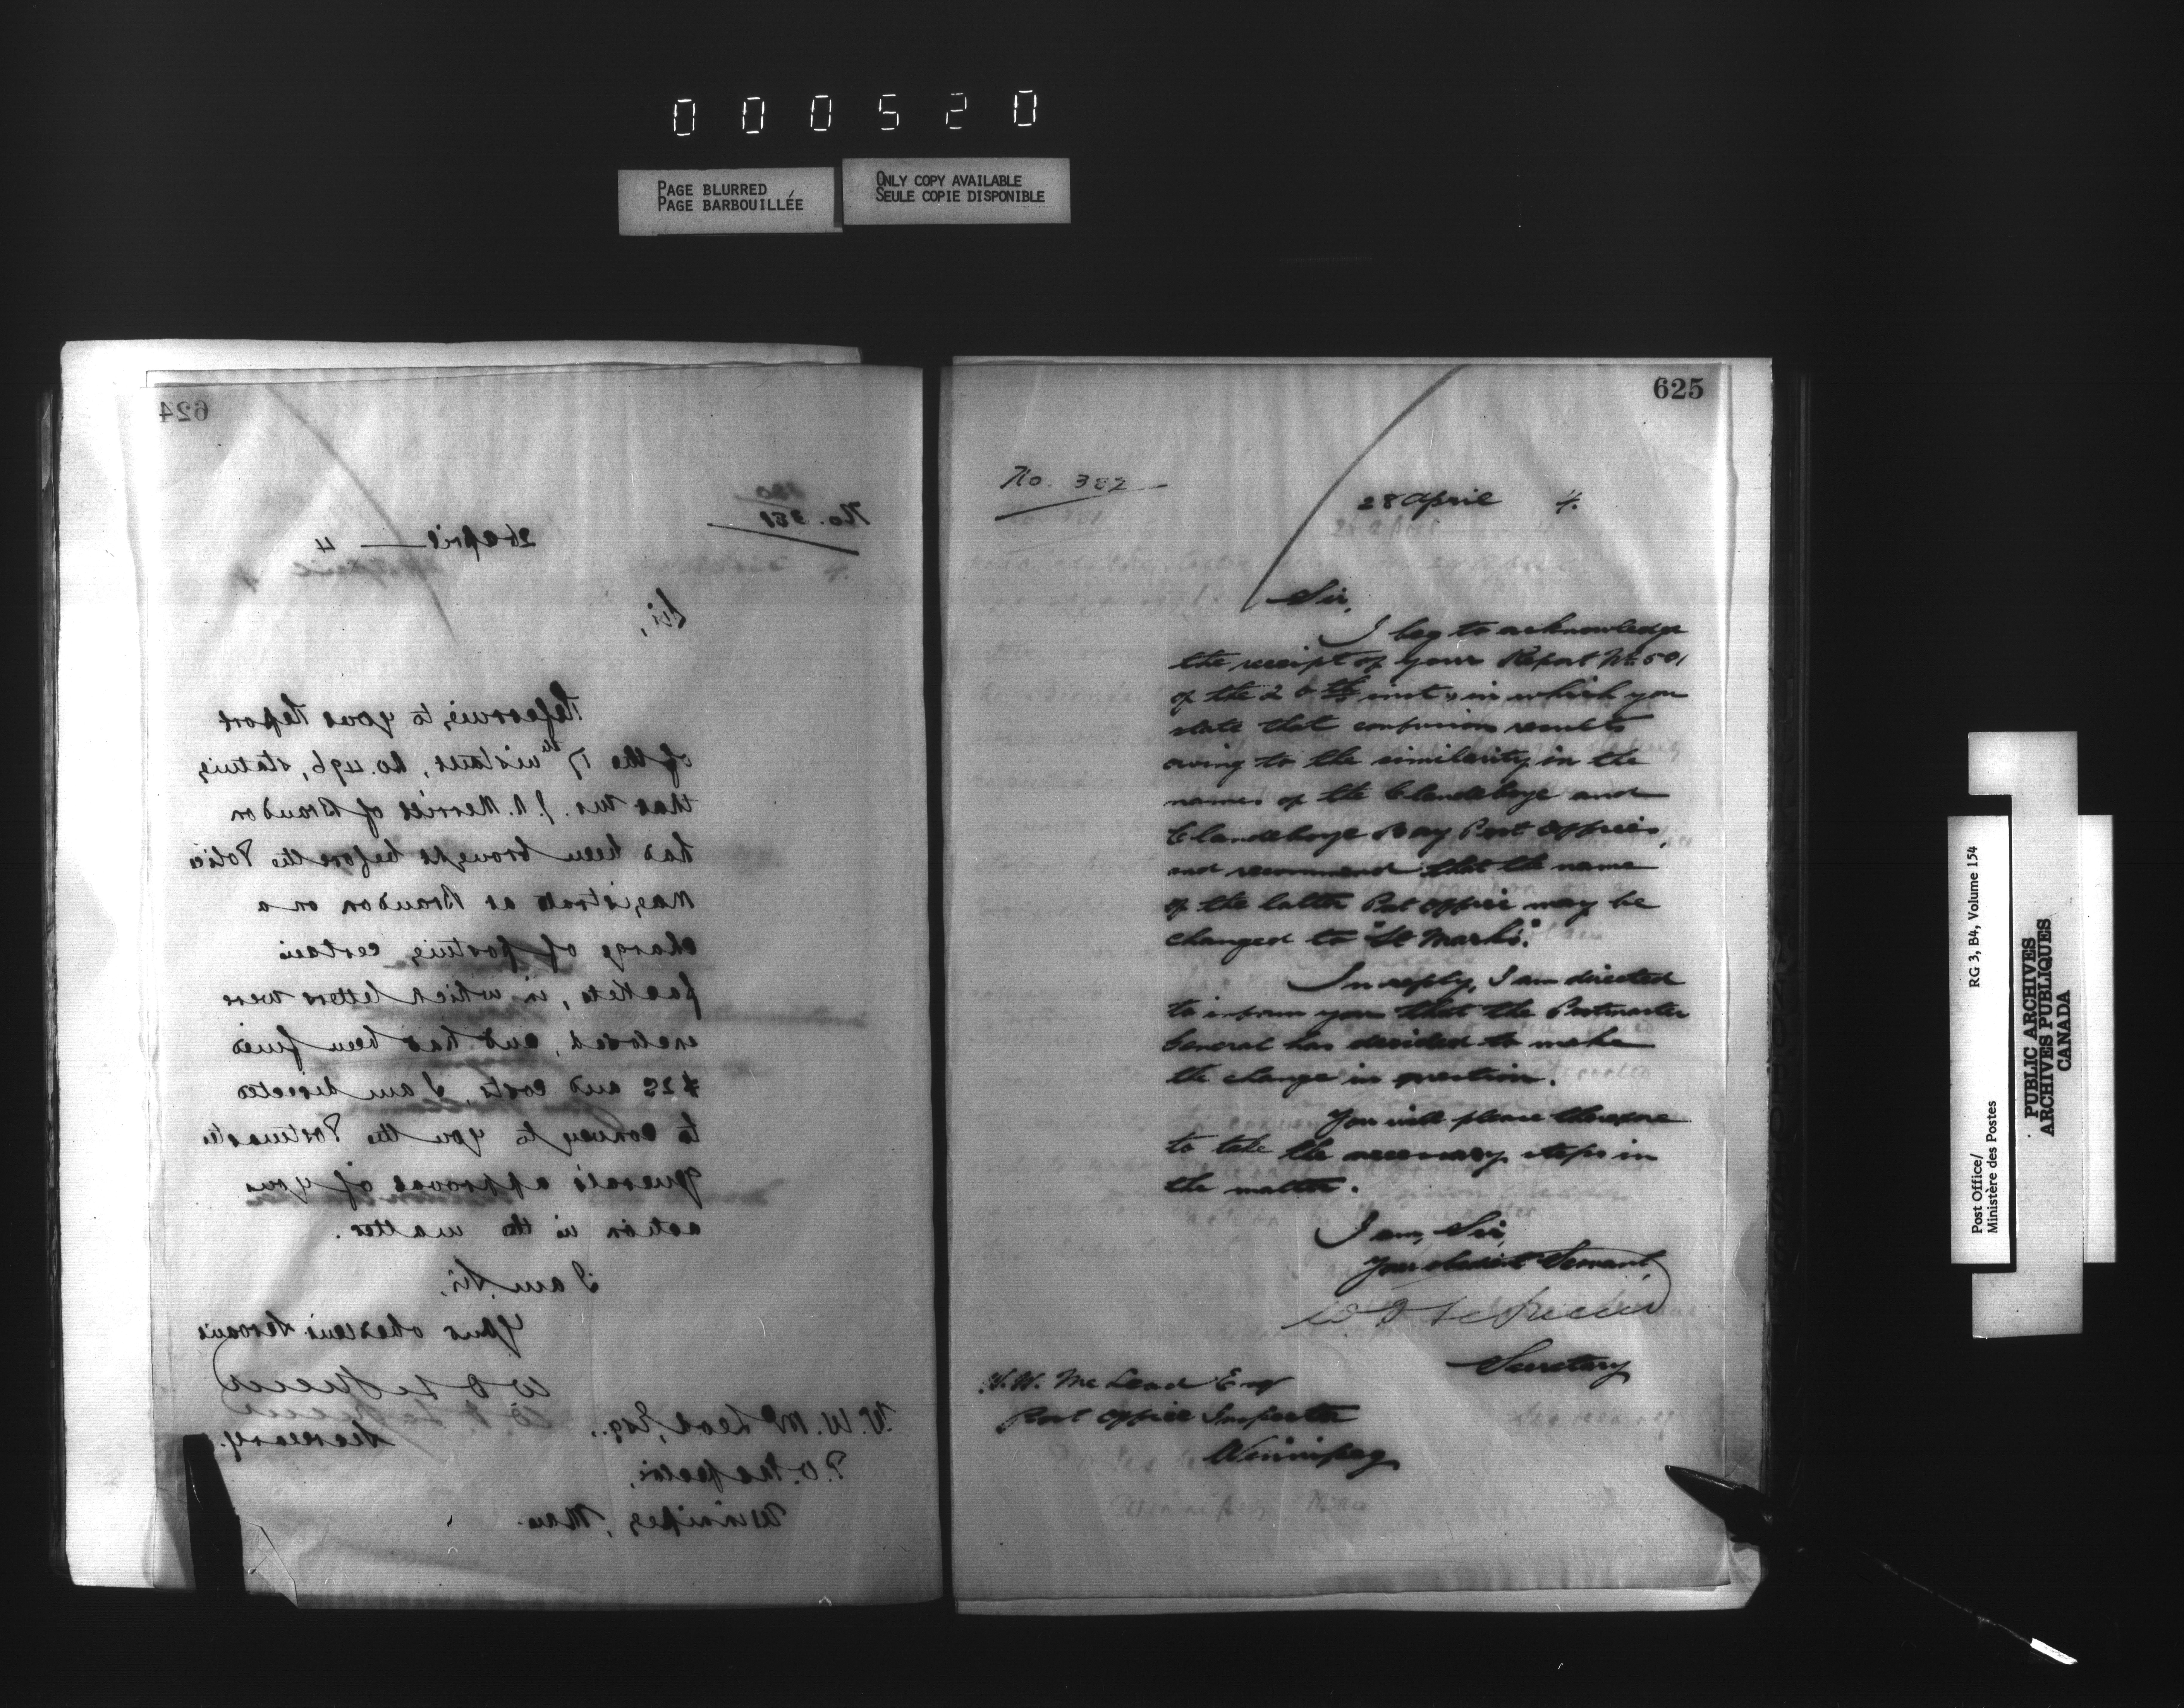 000520
PAGE BLURRED
PAGE BARBOUILLÉE
ONLY COPY AVAILABLE
SEULE COPIE DISPONIBLE
624
No. 381
26 April 4
Sir,
Referring to your Report
of the 17th instant, No. 496, stating
that Mr. J. A. Merrill of Brandon
had been brought before the Police
Magistrate at Brandon on a
charge of posting certain
packets, in which letters were
enclosed, and had been fined
$25 and costs, I am directed
to convey to you the Postmaster
General's approval of your
action in the matter.
I am, Sir,
Your obedient Servant
W D LeSueur
Secretary.
W. W. McLeod, Esq.,
P.O. Inspector,
Winnipeg, Man.
625
No. 382
28 April 4.
Sir,
I beg to acknowledge
the receipt of your Report No. 501
of the 26th inst., in which you
state that confusion results
owing to the similarity in the
names of the Clandeboye and
Clandeboye Bay Post Offices,
and recommend that the name
of the latter Post Office may be
changed to "St Marks".
In reply, I am directed
to inform you that the Postmaster
General has decided to make
the change in question.
You will please therefore
to take the necessary steps in
the matter.
I am, Sir,
Your obedient Servant,
W. D LeSueur
Secretary
W. W. McLeod Esq
Post Office Inspector
Winnipeg
Post Office/
Ministère des Postes
RG 3, B4, Volume 154
PUBLIC ARCHIVES
ARCHIVES PUBLIQUES
CANADA